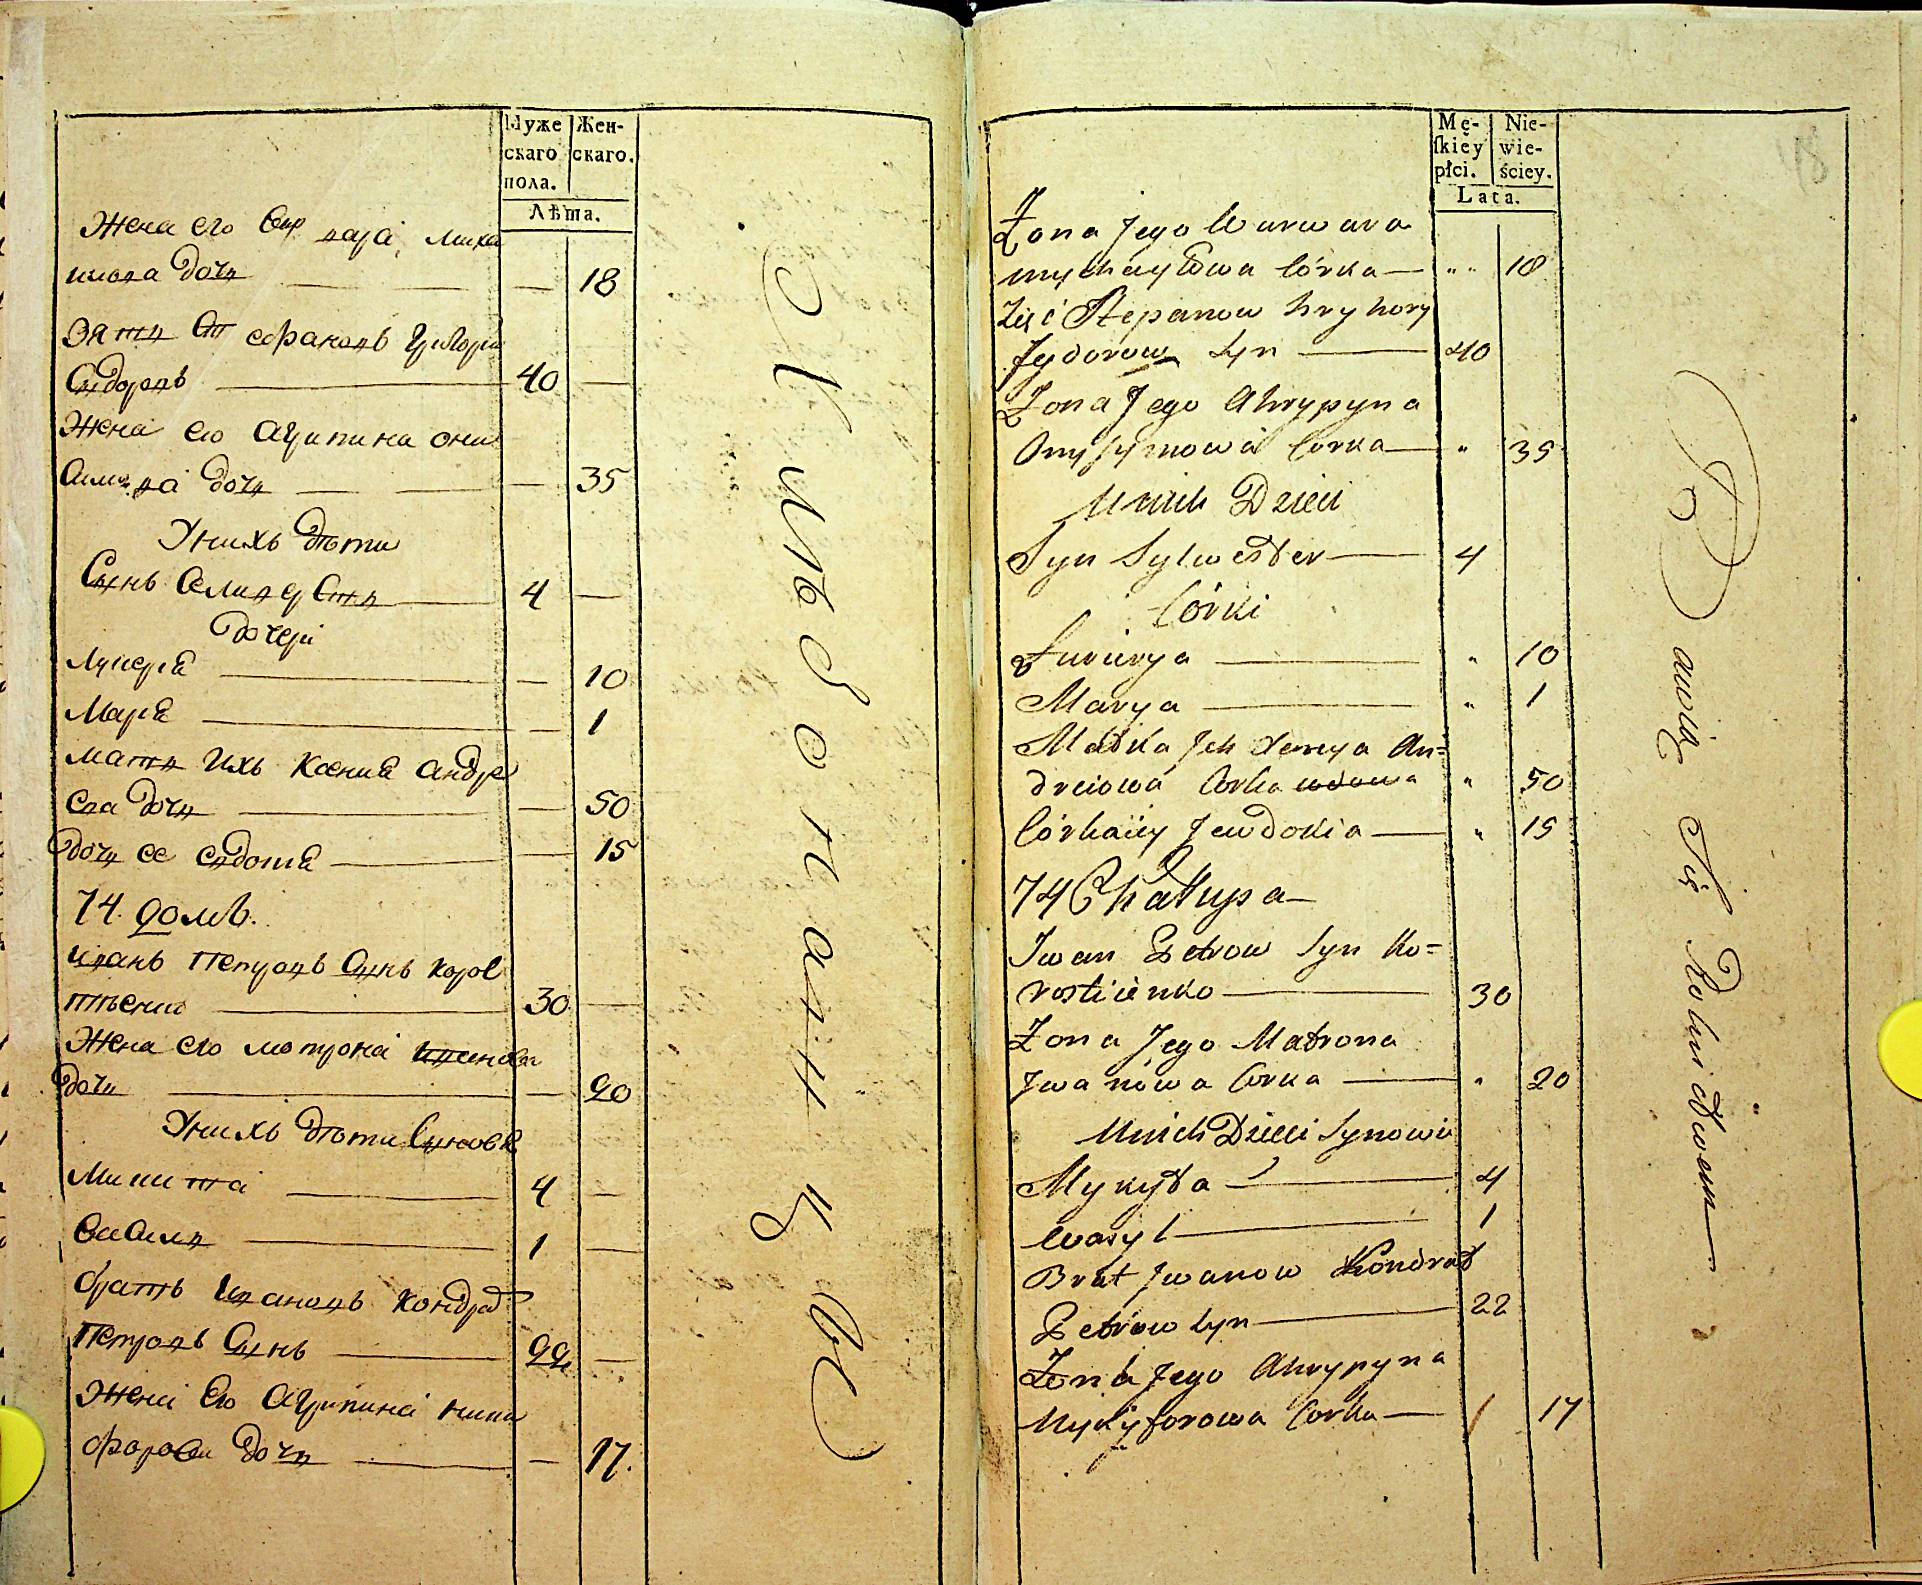 Муже
скаго
пола.
Жен-
скаго.
Лѣта.
Жена его Варвара Миха
илова дочь 18
Зять Степановъ Григорій
Сидоровъ 40
Жена его Агрипина Они
симова дочь 35
У нихъ дѣти
Сынъ Селиверсть 4
дочери
Лукерія 10
Марія 1
мать ихъ Ксенія Андре
ева дочь 50
дочь ее Евдокія 15
74. домъ.
Иванъ Петровъ Сынъ Корос
тѣенко 30
Жена его Мотрона Иванова
дочь 20
У нихъ дѣти Сыновя
Микита 4
Василь 1
братъ Ивановъ Кондрат
Петровъ Сынъ 22
Жена Его Агрипина Ники
форова дочь 17.
Имѣютъ
18
Mę-
ſkiey
płci.
Nie-
wie-
ściey.
Lata.
Żona Jego Warwara
Mychayłowa Córka „ 18
Zięć Stepanow Hryhory
Sydorow Syn 40
Żona Jego Ahrypyna
Onysymowa Corka „ 35
U nich Dzieci
Syn Sylwester 4
Córki
Łukirya „ 10
Marya „ 1
Matka Jch Xenya An=
dreiowa Corka wdowa „ 50
Córka iey Jewdokia „ 15
74 Chałupa
Jwan Petrow Syn Ko=
rostieienko 30
Żona Jego Matrona
Jwanowa Corka „ 20
U nich Dzieci Synowie
Mykyta 4
Wasyl 1
Brat Jwanow Kondrat
Petrow Syn 22
Żona Jego Ahrypyna
Mykyforowa Corka 17
Bawią Się Rolnictwem